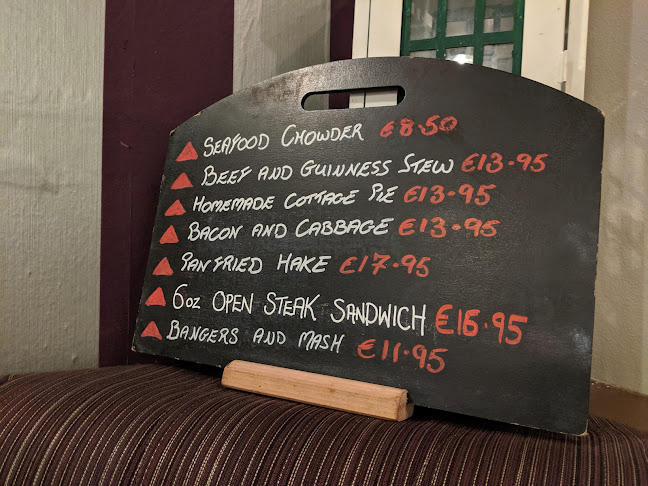 SEAFOOD CHOWDER €8.50
BEEF AND GUINNESS STEW €13.95
HOMEMADE COTTAGE PIE €13.95
BACON AND CABBAGE €13.95
PAN FRIED HAKE €17.95
6oz OPEN STEAK SANDWICH €16.95
BANGERS AND MASH €11.95